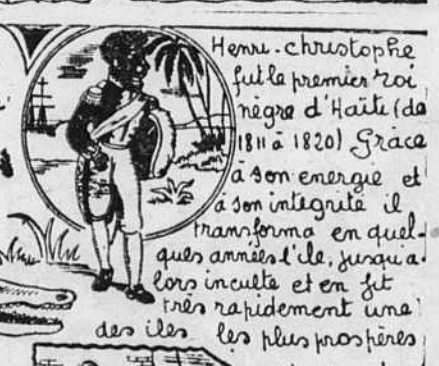 Henri-christophe
fut le premier roi
nègre d'Haïti (de
1811 à 1820) Grâce
à son energie et
à son integrité il
transforma en quel-
ques années l'ile, jusqu'a-
lors inculte et en fit
très rapidement une
des iles les plus prospères